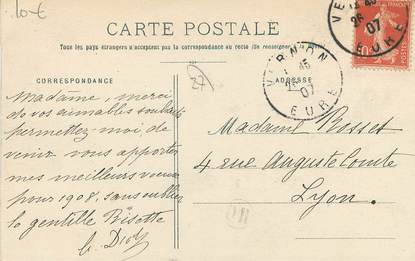 10-€
CARTE POSTALE
Tous les pays étrangers n'acceptent pas la correspondance au recto (Se renseigner
CORRESPONDANCE
ADRESSE
Madame, merci
de vos aimables souhaits
permettez-moi de
venir vous apporter
mes meilleurs voeux
pour 1908, sans oublier
la gentille Bisotte
Madame Rosset
4 rue Auguste Comte
Lyon.
VERNON
07
EURE
26
07
EURE